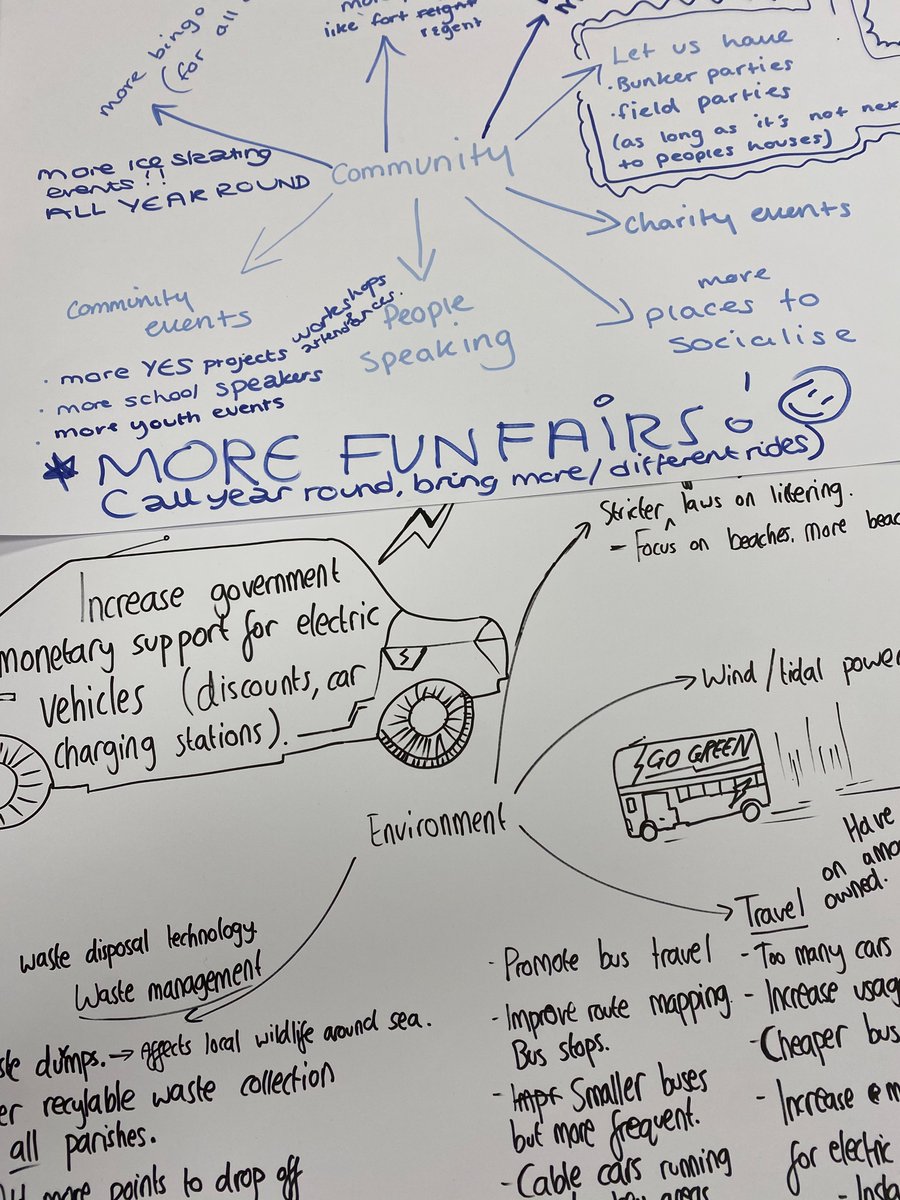 more bingo
(for all
like fort regent
regent
Let us have
·Bunker parties
·field parties
(as long as it's not nex
to peoples houses)
more ice skating
events!!
ALL YEAR ROUND
Community
charity events
more
places to
socialise
People
speaking
community
events
· more YES projects workshops
attendances.
· more school speakers
· more youth events
* MORE FUN FAIRS!
(all year round, bring more/different rides)
Stricter laws on littering.
- Focus on beaches. More beac
Increase government
monetary support for electric
vehicles (discounts, car
charging stations).
Wind/tidal power
GO GREEN
Environment
Have
on amo
owned.
Travel
- Too many cars
- Increase usag
- Cheaper bus
- Increase
for electric
- Insta
- Promote bus travel
- Improve route mapping.
Bus stops.
- Smaller buses
but more frequent.
- Cable cars running
areas
waste disposal technology
Waste management
ste dumps. → Affects local wildlife around sea.
er recylable waste collection
all parishes.
more points to drop off